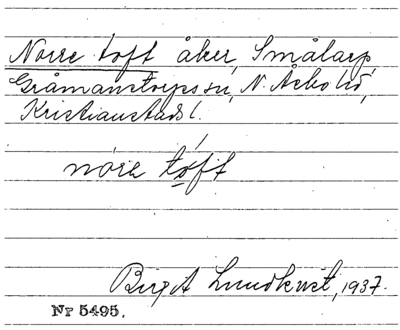 Norre toft åker, Smålarp
Gråmanstorps sn, N. Åsbo hd,
Kristianstads l.
nóre tóft
Birgit Lundkvist, 1937.
Nr 5495.